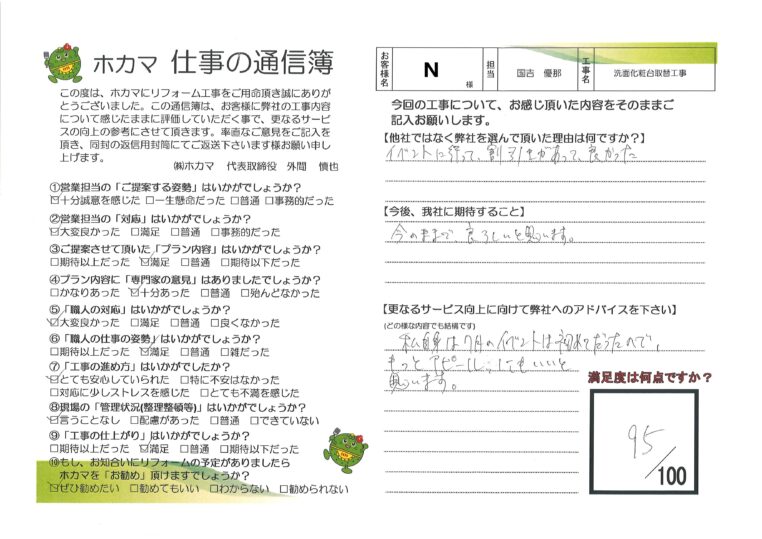 ホカマ 仕事の通信簿
この度は、ホカマにリフォーム工事をご用命頂き誠にありが
とうございました。この通信簿は、お客様に弊社の工事内容
について感じたままに評価していただく事で、更なるサービス
の向上の参考にさせて頂きます。率直なご意見をご記入を
頂き、同封の返信用封筒にてご返送下さいます様お願い申し
上げます。
㈱ホカマ 代表取締役 外間 慎也
①営業担当の「ご提案する姿勢」はいかがでしょうか?
☑十分誠意を感じた □一生懸命だった □普通 □事務的だった
②営業担当の「対応」はいかがでしょうか?
☑大変良かった □満足 □普通 □事務的だった
③ご提案させて頂いた「プラン内容」はいかがでしょうか?
□期待以上だった ☑満足 □普通 □期待以下だった
④プラン内容に「専門家の意見」はありましたでしょうか?
□かなりあった ☑十分あった □普通 □殆んどなかった
⑤「職人の対応」はいかがでしょうか?
☑大変良かった □満足 □普通 □良くなかった
⑥「職人の仕事の姿勢」はいかがでしょうか?
□期待以上だった ☑満足 □普通 □雑だった
⑦「工事の進め方」はいかがでしたか?
☑とても安心していられた □特に不安はなかった
□対応に少しストレスを感じた □とても不満を感じた
⑧現場の「管理状況(整理整頓等)」はいかがでしょうか?
☑言うことなし □配慮があった □普通 □できていない
⑨「工事の仕上がり」はいかがでしょうか?
□期待以上だった ☑満足 □普通 □期待以下だった
⑩もし、お知合いにリフォームの予定がありましたら
ホカマを「お勧め」頂けますでしょうか?
☑ぜひ勧めたい □勧めてもいい □わからない □勧められない
お客様名 N 様 担当 国吉 優那 工事名 洗面化粧台取替工事
今回の工事について、お感じ頂いた内容をそのままご
記入お願いします。
【他社ではなく弊社を選んで頂いた理由は何ですか?】
イベントに行って、割引等があって、良かった
【今後、我社に期待すること】
今のままで、良ろしいと思います。
【更なるサービス向上に向けて弊社へのアドバイスを下さい】
(どの様な内容でも結構です)
私自身は7月のイベントは初めてだったので、
もっとアピールしてもいいと
思います。
満足度は何点ですか?
95
/100